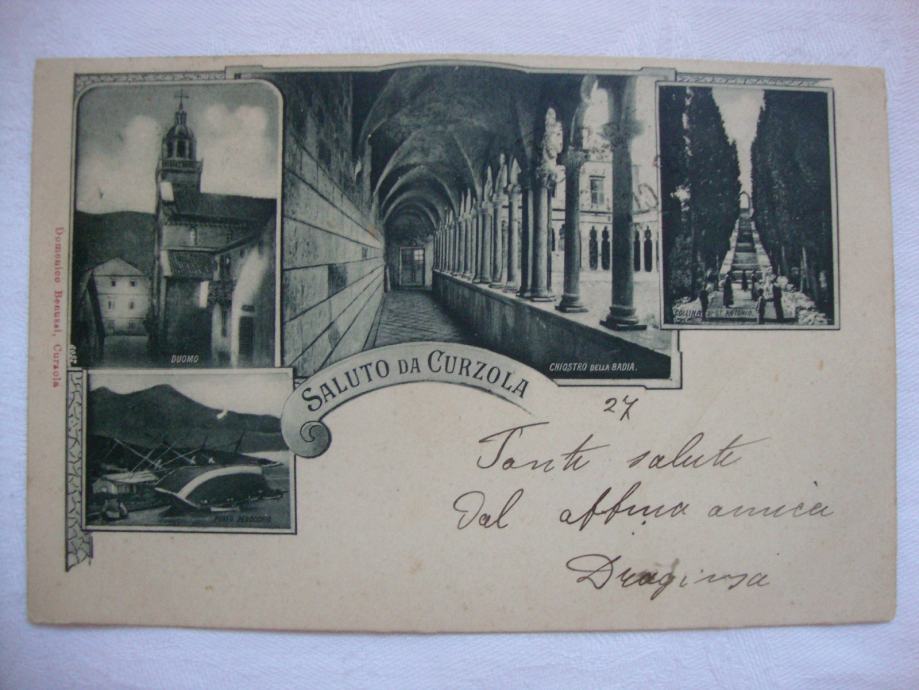 Domenico Benussi, Curzola
DUOMO
SALUTO DA CURZOLA
CHIOSTRO DELLA BADIA.
COLLINA DI ST. ANTONIO.
27
Tanti saluti
Dal affma amica